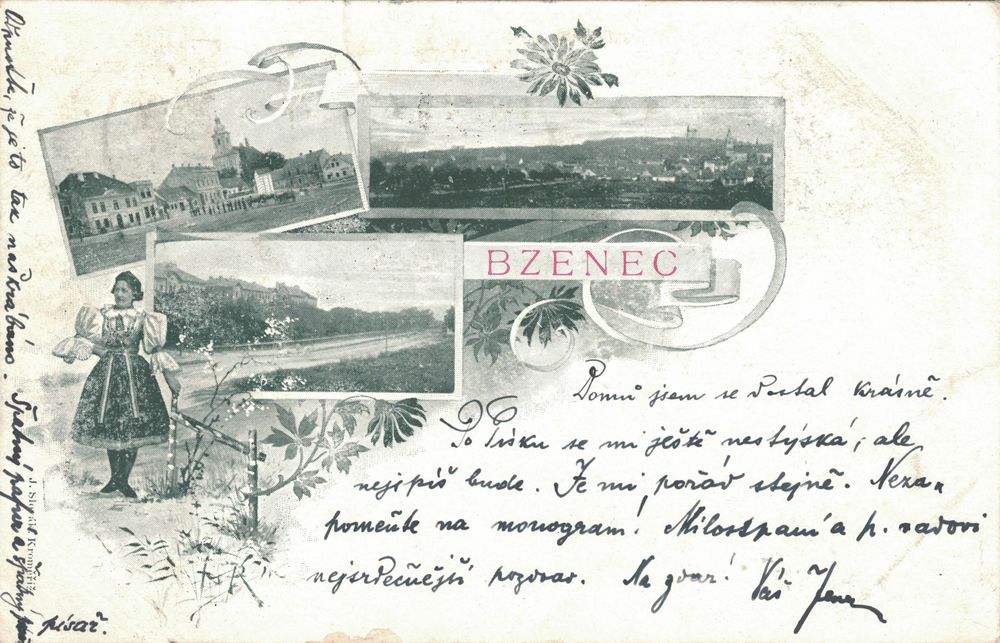 BZENEC
Domů jsem se dostal krásně.
Po Písku se mi ještě nestýská, ale
nejspíš bude. Je mi pořád stejně. Neza-
pomeňte na monogram! Milostpaní a p. radovi
nejsrdečnější pozdrav. Na zdar! Váš
Odpusťte, že je to tak naškrábáno. Špatný papír a špatný
písař.
Kroměříž